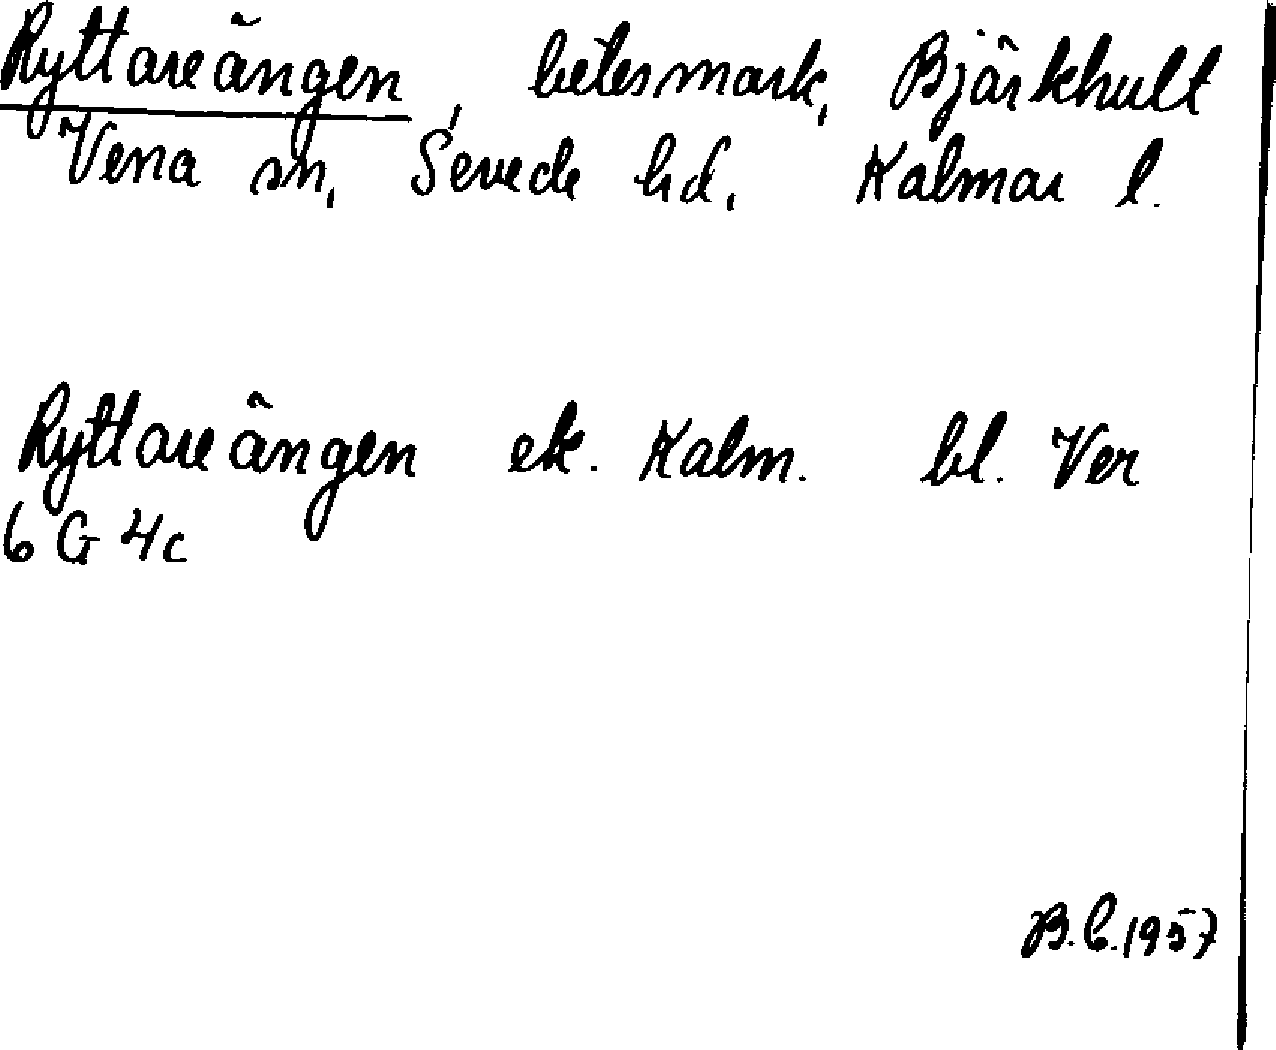 Ryttareängen, betesmark, Bjärkhult
Vena sn, Sevede hd, Kalmar l.
Ryttareängen ek. Kalm. bl. Ver
6 G 4c
B.C. 1957